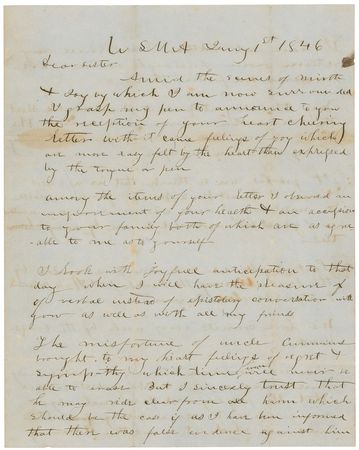 U S M A Jany 1st 1846
Dear Sister
Amid the scenes of mirth
& joy by which I am now surrounded
I grasp my pen to announce to you
the reception of your heart cheering
letter with it came feelings of joy which
are more easy felt by the heart than expressed
by the tongue or pen
among the items of your letter I observed an
improvement of your health & an accession
to your family both of which are as agre
-able to me as to yourself
I look with joyfull anticipation to that
day when I will have the pleasure of
verbal instead of epistolary conversation with
you as well as with all my friends
The misfortune of uncle Cummins
brought to my heart feelings of regret &
sympathy which time will never be
able to erase But I sincerely trust that
he may ride clear from all harm which
should be the case if as I have been informed
that there was false evidence against him